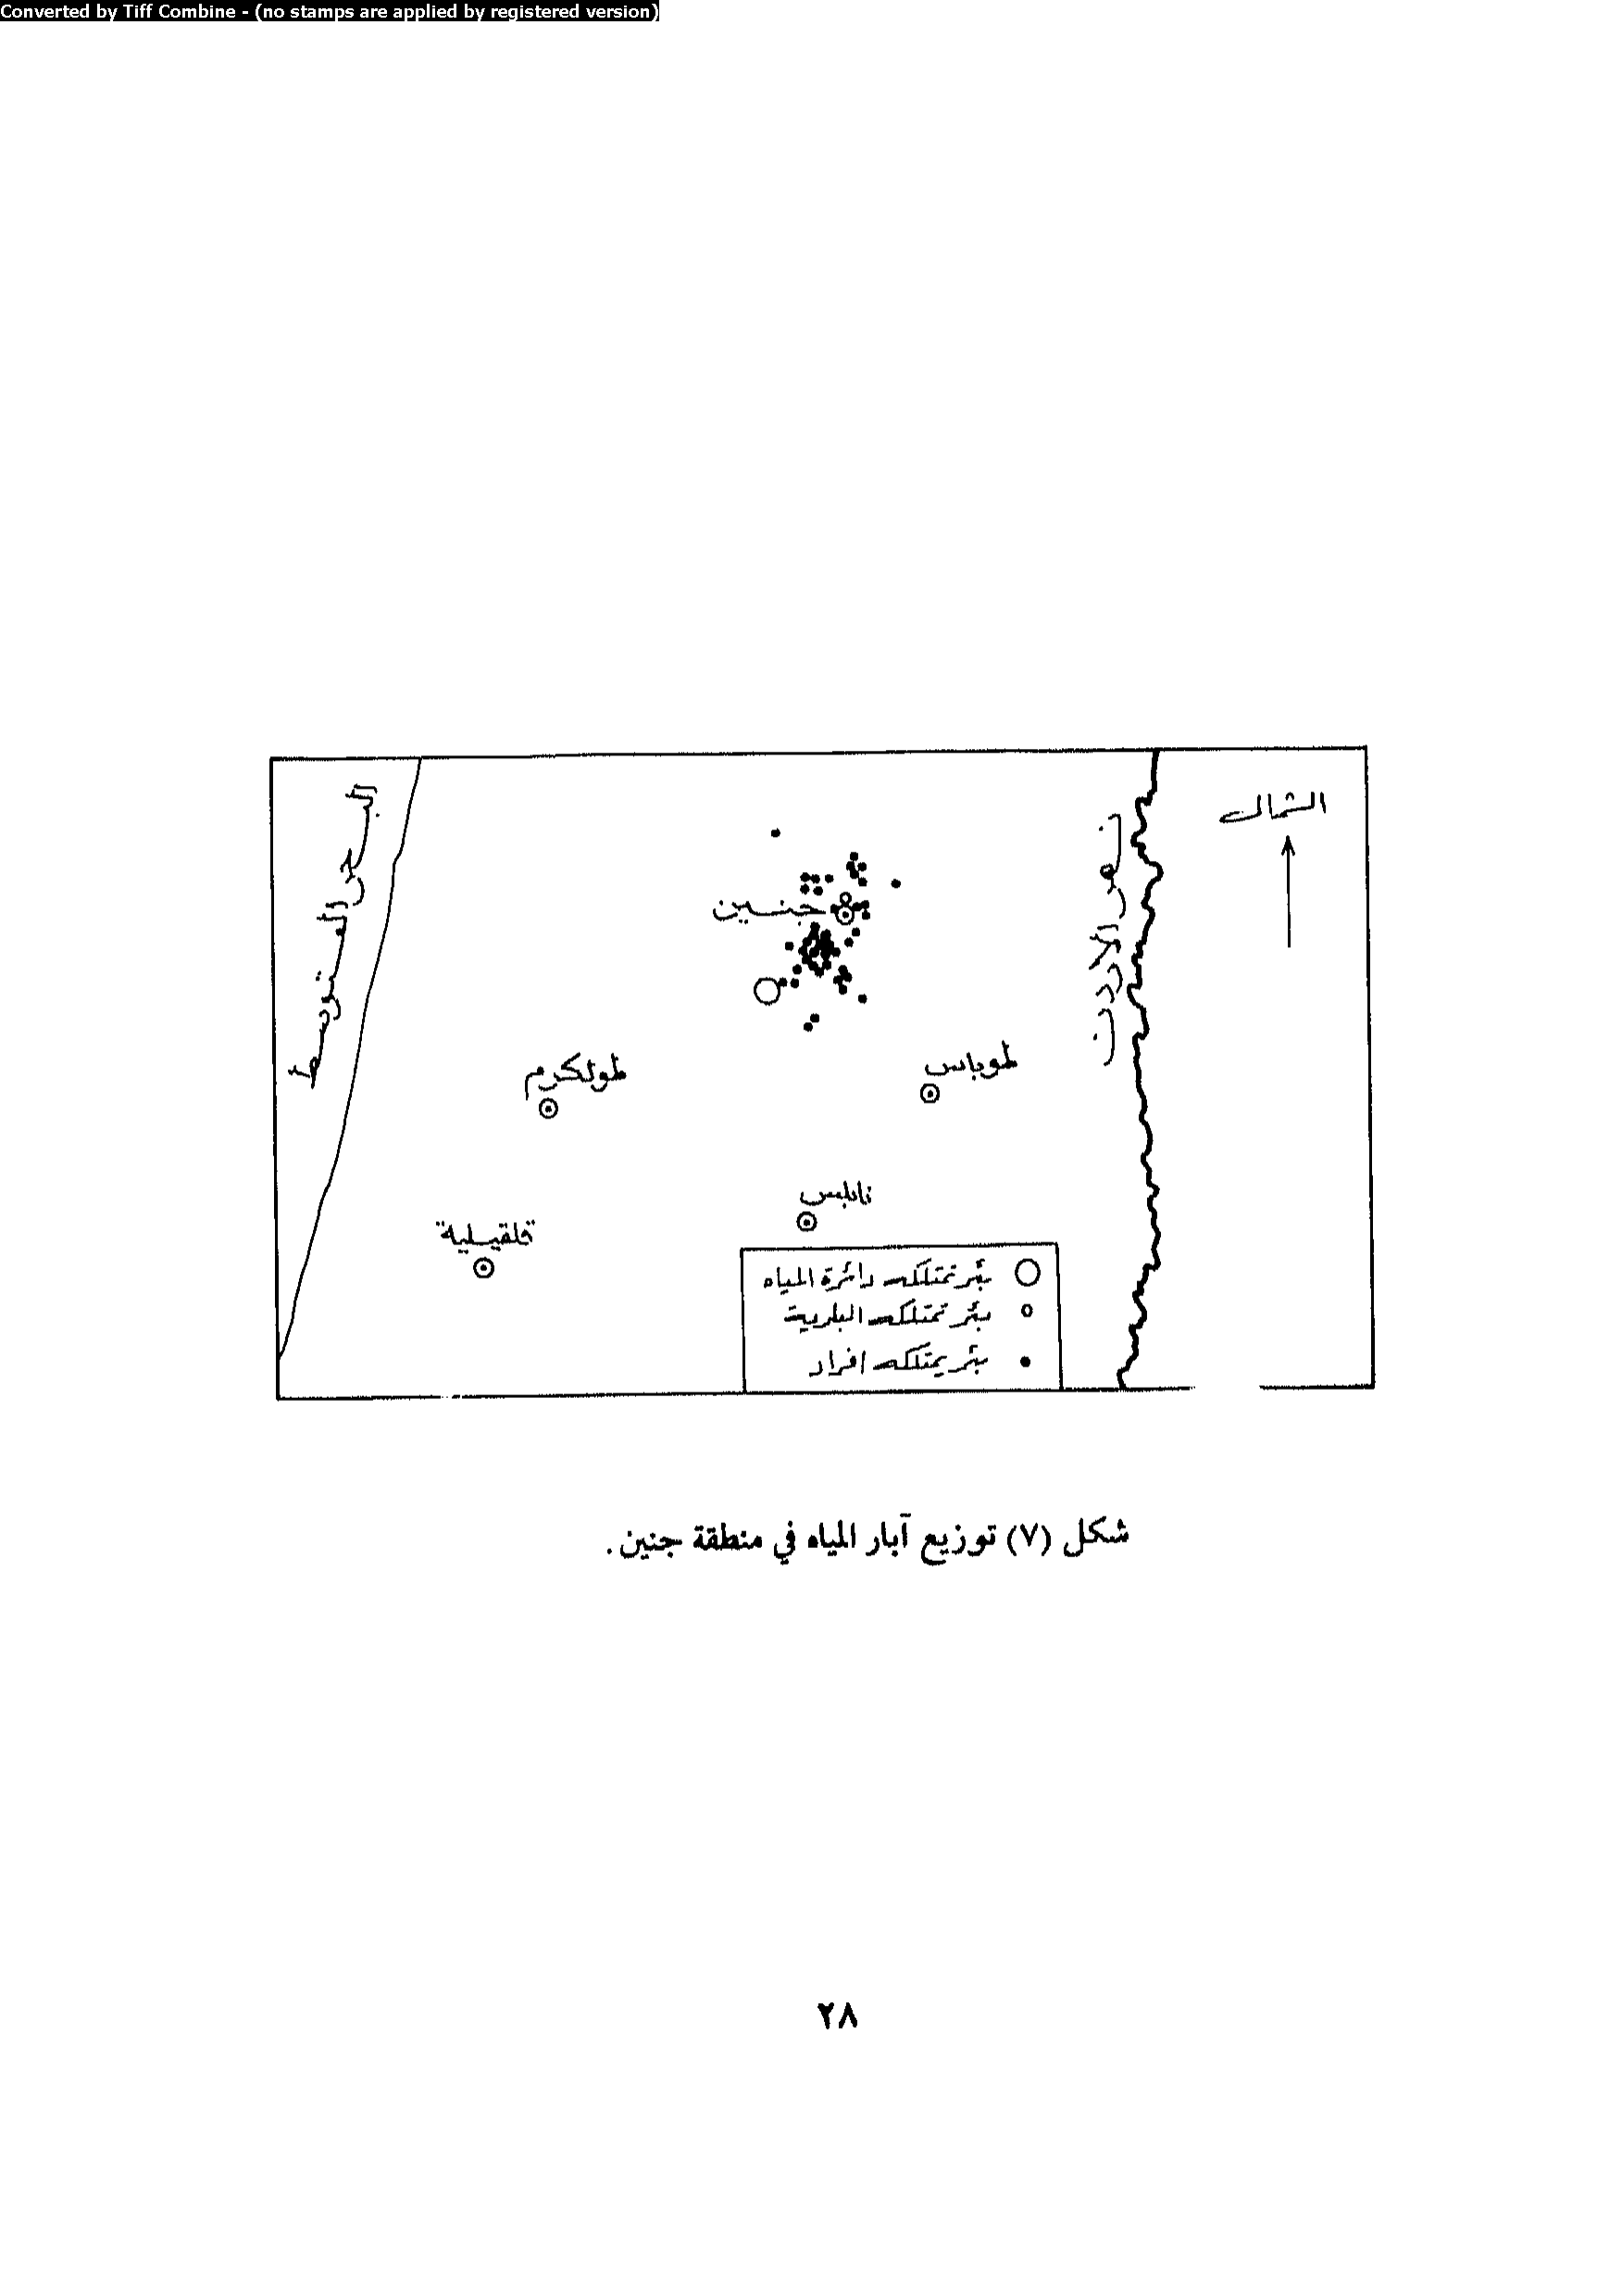 Converted by Tiff Combine - (no stamps are applied by registered version)
الشمال
البحر المتوسط
نهر الاردن
جنين
طوباس
طولكرم
نابلس
قلقيلية
بئر تمتلكه دائرة المياه
بئر تمتلكه البلدية
بئر يمتلكه افراد
شكل (٧) توزيع آبار المياه في منطقة جنين .
٢٨